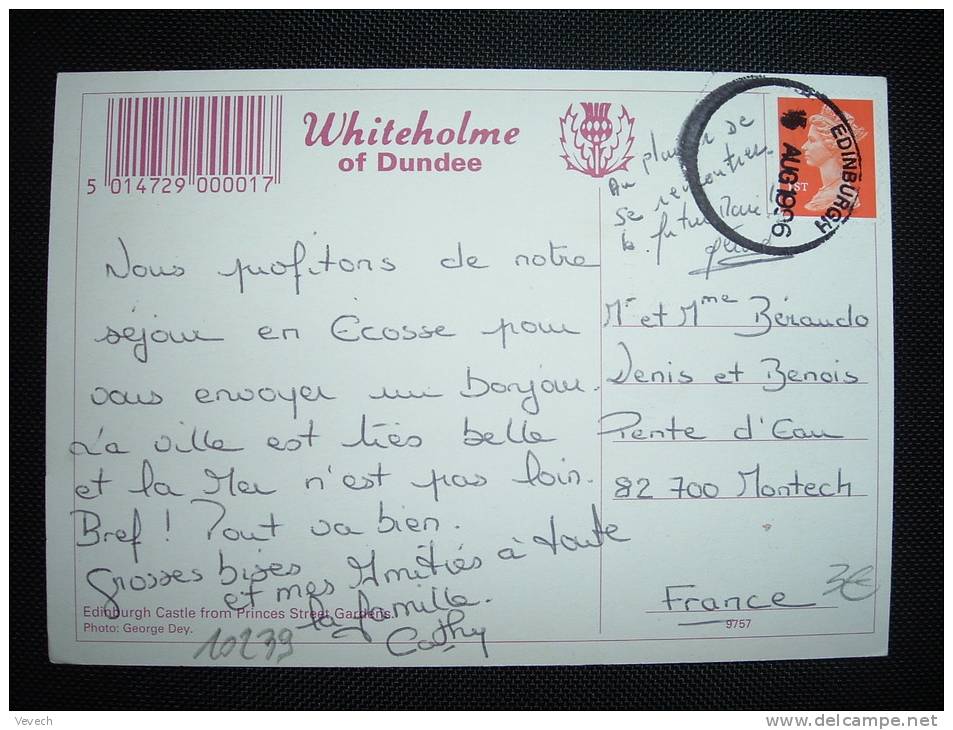 5 014729 000017
Whiteholme
of Dundee
EDINBURGH
AUG 1996
1ST
Au plaisir de
se rencontrer
Nous profitons de notre
séjour en Ecosse pour
vous envoyer un bonjour.
La ville est très belle
et la Mer n'est pas loin.
Bref ! Tout va bien.
Grosses bises
et mes Amitiés à toute
la famille.
Cathy
Mr et Mme Béraudo
Denis et Benois
Pente d'Eau
82 700 Montech
France
3€
Edinburgh Castle from Princes Street Gardens.
Photo: George Dey.
9757
10239
Vevech
www.delcampe.net